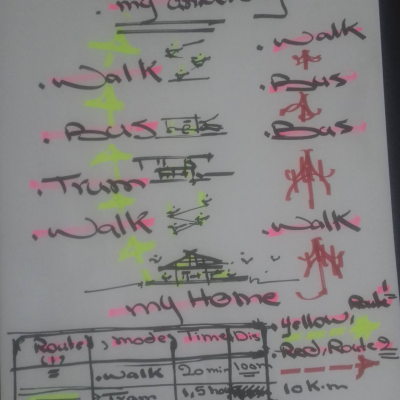 . my
. Walk
. Walk
. Bus
. Bus
. Bus
. Tram
. Walk
. Walk
my Home
Route 1
yellow,
. Red, Route 2
10 K.m
Route (1) , mode Time Dis
= . Walk 20 min 100m
Tram 1,5h